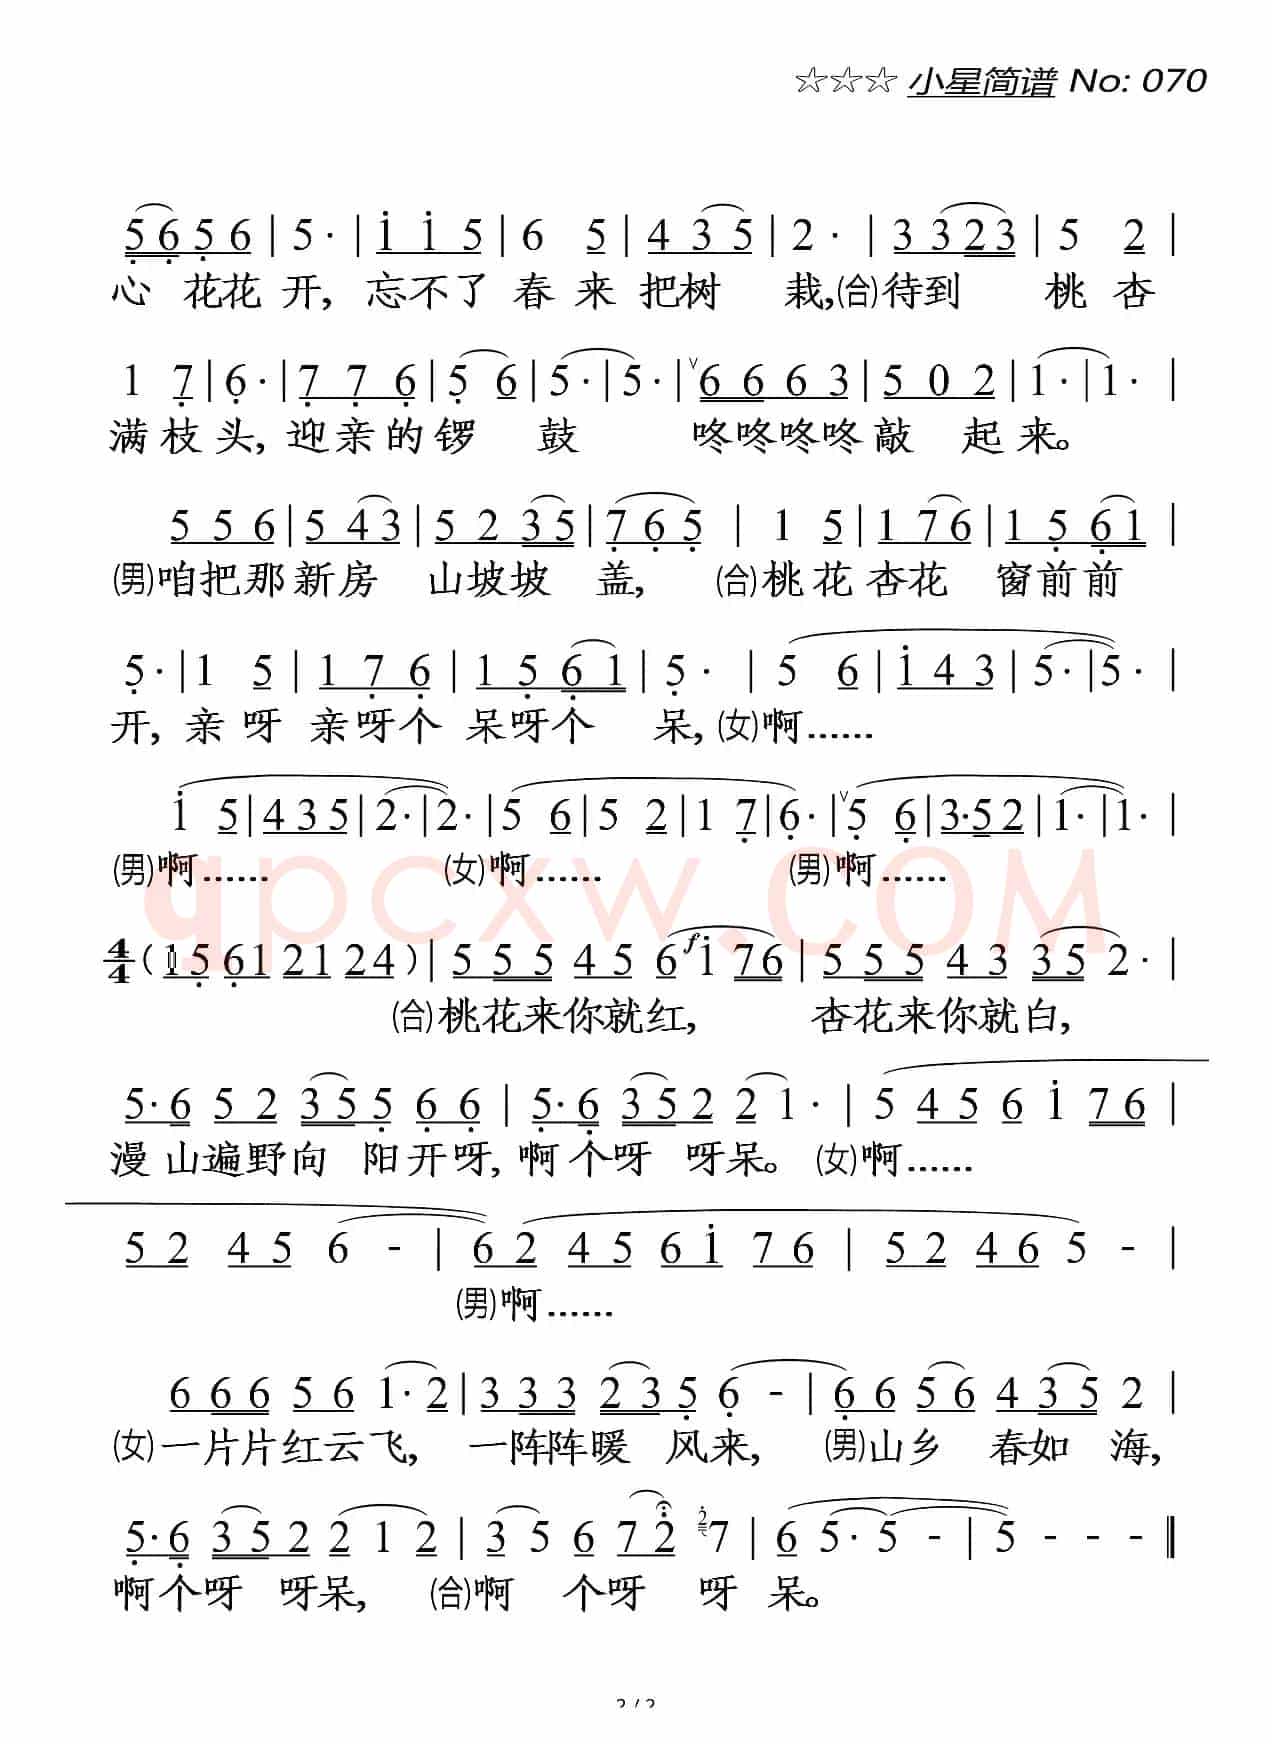 ☆☆☆ 小星简谱 No: 070
5 6 5 6 | 5 · | 1 1 5 | 6 5 | 4 3 5 | 2 · | 3 3 2 3 | 5 2 |
心 花花 开, 忘不了 春 来 把树 栽,(合)待到 桃 杏
1 7 | 6 · | 7 7 6 | 5 6 | 5 · | 5 · | ∨ 6 6 6 3 | 5 0 2 | 1 · | 1 · |
满 枝 头, 迎 亲 的 锣 鼓 咚咚咚咚 敲 起 来。
5 5 6 | 5 4 3 | 5 2 3 5 | 7 6 5 | 1 5 | 1 7 6 | 1 5 6 1 |
(男)咱把那 新 房 山坡坡 盖, (合)桃 花 杏花 窗前前
5 · | 1 5 | 1 7 6 | 1 5 6 1 | 5 · | 5 6 | 1 4 3 | 5 · | 5 · |
开, 亲 呀 亲呀个 呆呀个 呆,(女)啊……
1 5 | 4 3 5 | 2 · | 2 · | 5 6 | 5 2 | 1 7 | 6 · | ∨ 5 6 | 3 · 5 2 | 1 · | 1 · |
(男)啊…… (女)啊…… (男)啊……
qpcxw.com
4/4 ( 1 5 6 1 2 1 2 4 ) | 5 5 5 4 5 6 f 1 7 6 | 5 5 5 4 3 3 5 2 · |
(合)桃花来你就红, 杏花来你就白,
5 · 6 5 2 3 5 5 6 6 | 5 · 6 3 5 2 2 1 · | 5 4 5 6 1 7 6
漫 山遍野向 阳开呀, 啊 个呀 呀呆。 (女)啊……
5 2 4 5 6 - | 6 2 4 5 6 1 7 6 | 5 2 4 6 5 - |
(男)啊……
6 6 6 5 6 1 · 2 | 3 3 3 2 3 5 6 - | 6 6 5 6 4 3 5 2 |
(女)一片片红云飞, 一阵阵暖 风来, (男)山乡 春如 海,
5 · 6 3 5 2 2 1 2 | 3 5 6 7 2 2 7 | 6 5 · 5 - | 5 - - - ‖
啊个呀 呀呆, (合)啊 个呀 呀 呆。